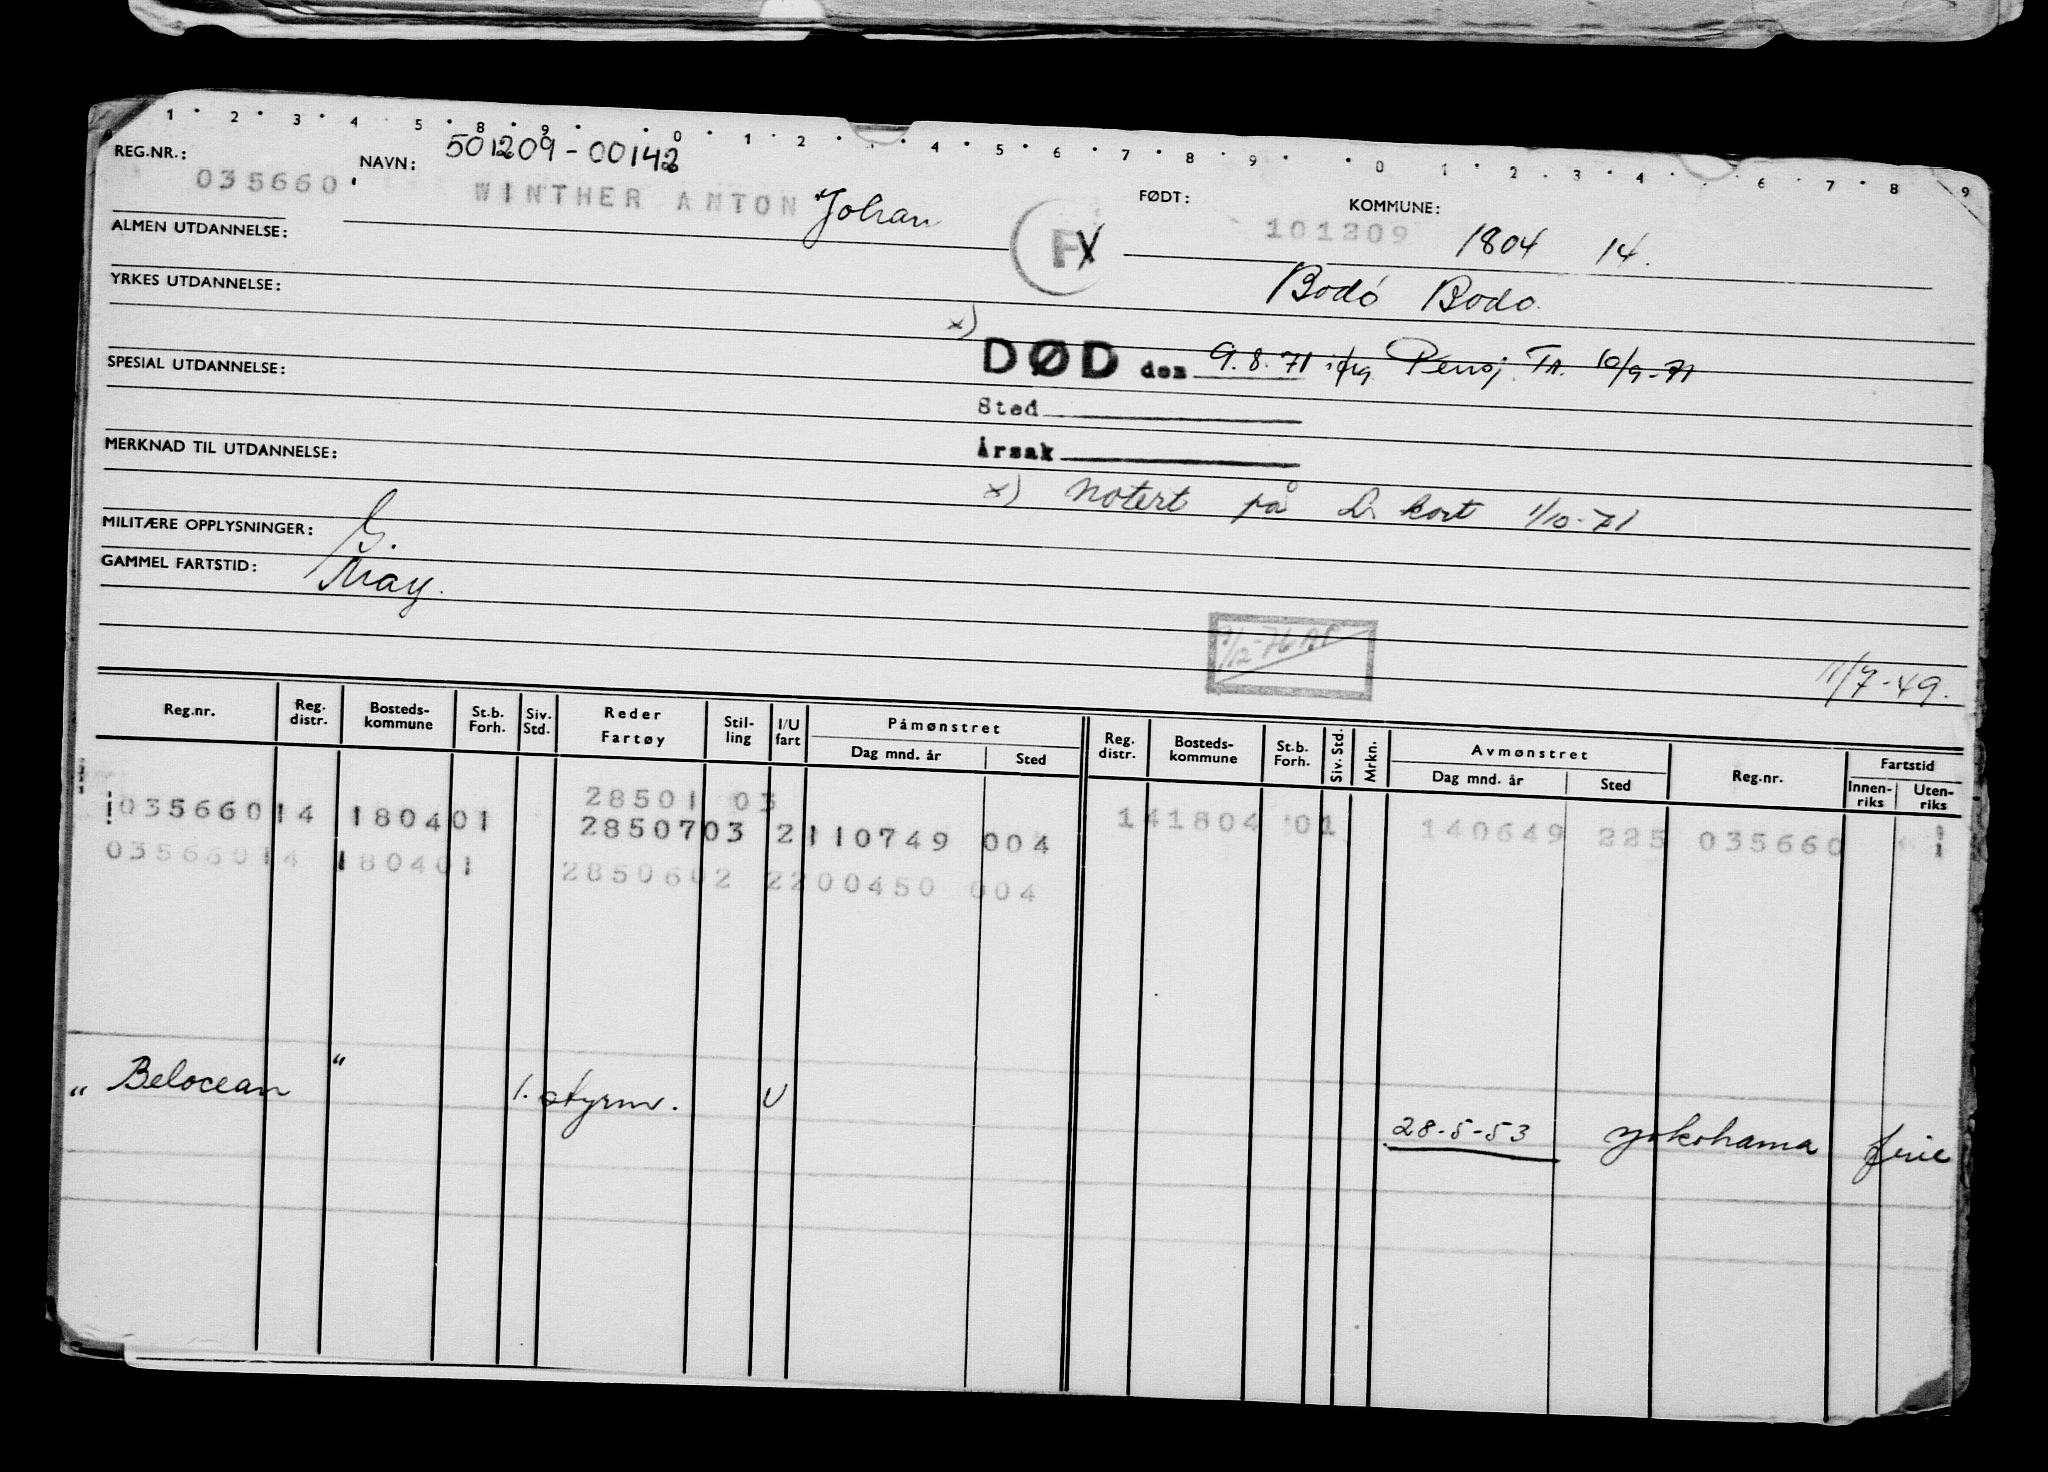 1 2 3 4 5 8 9 0 1 2 4 5 6 7 8 9 0 1 2 3 4 6 7 8 9
REG.NR.: 035660 NAVN: 501209-00142
WINTHER ANTON Johan FØDT: 101209 KOMMUNE: 1804 14.
ALMEN UTDANNELSE: F
Bodø Bodø
YRKES UTDANNELSE:
x) DØD den 9.8.71 ifig. Pensj. Tr. 10/9-71
SPESIAL UTDANNELSE:
Sted
MERKNAD TIL UTDANNELSE:
Årsak
x) Notert på kort 1/10-71
MILITÆRE OPPLYSNINGER:
GAMMEL FARTSTID:
11/7-49.
Reg.nr. Reg. distr. Bosteds-kommune St.b. Forh. Siv. Std. Reder Fartøy Stil-ling I/U fart Påmønstret Dag mnd. år Sted Reg. distr. Bosteds-kommune St.b. Forh. Siv. Std. Mrkn. Avmønstret Dag mnd. år Sted Reg.nr. Fartstid Innen-riks Uten-riks
28501 03 141804 01 140649 225 035660
035660 14 1804 01 28507 03 2 110749 004
035660 14 1804 01 28506 02 2 200450 004
"Belocean" 1. styrm. U 28-5-53 Yokohama ferie